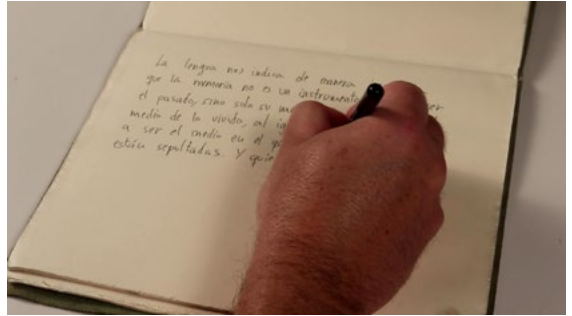 La lengua nos indica de manera
que la memoria no es un instrumento ser
el pasado, sino solo su
medio de lo vivido, al
a ser el medio en el
están sepultadas. Y